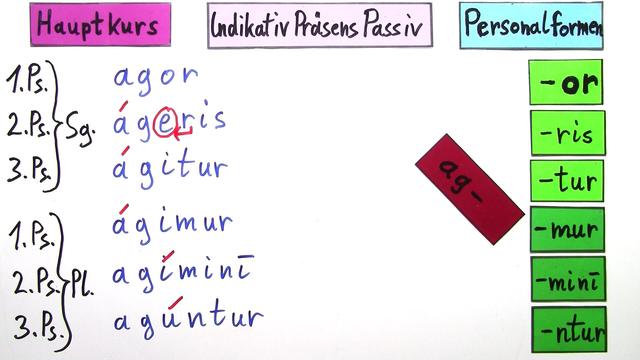 Hauptkurs Indikativ Präsens Passiv Personalformen
1.Ps. agor -or
2.Ps. Sg. ágeris -ris
3.Ps. ágitur -tur
ag-
1.Ps. ágimur -mur
2.Ps. Pl. agíminī -minī
3.Ps. agúntur -ntur